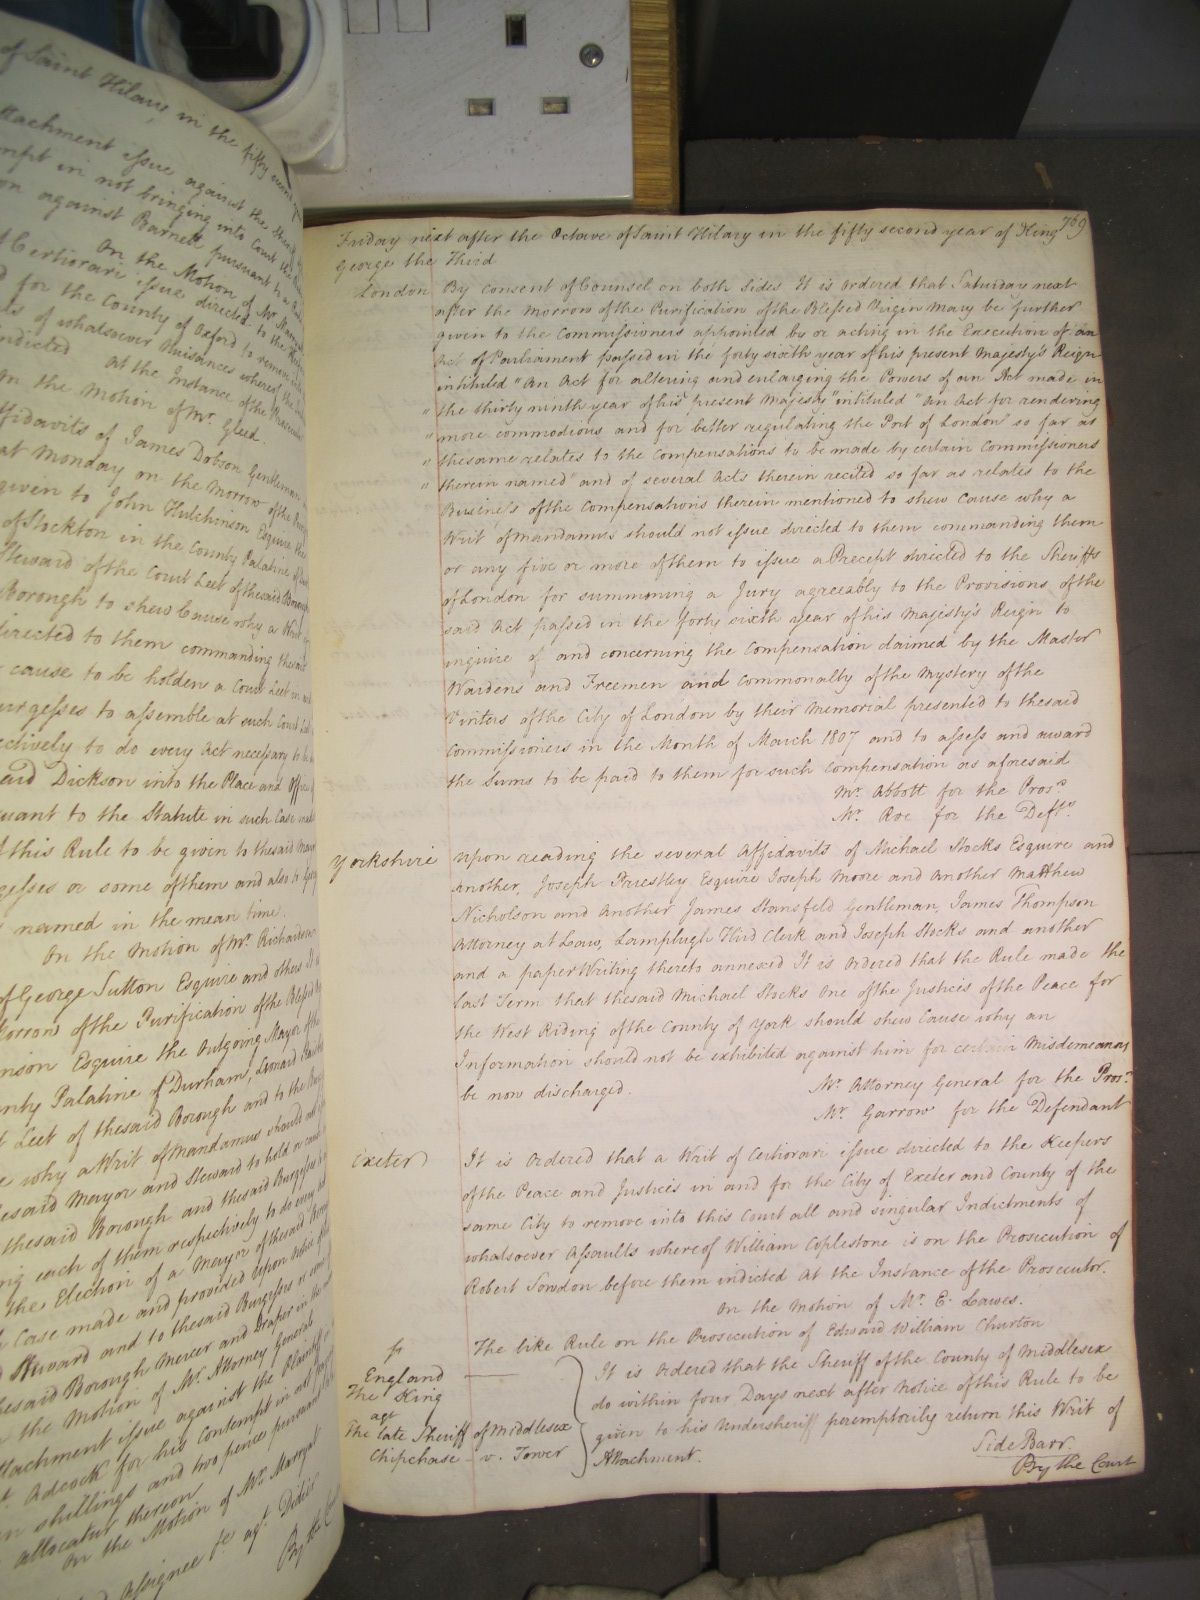 of Saint Hilary in the fifty second
Attachment issue against the Sheriff
in not bringing into Court the
on against Barnett pursuant to a
On the Motion of Mr. Marryat
Certiorari issue directed to the Keepers
d for the County of Oxford to remove
of whatsoever Nuisances whereof the
Indicted At the Instance of the Prosecutor
On the Motion of Mr. Gleed.
ffidavits of James Dobson Gentleman
at Monday on the Morrow of the
given to John Hutchinson Esquire the
of Stockton in the County Palatine of
Steward of the Court Leet of the said Borough
Borough to shew Cause why a Writ
directed to them commanding the said
cause to be holden a Court Leet
urgesses to assemble at such Court
ectively to do every Act necessary to
aid Dickson into the Place and Office
uant to the Statute in such Case made
this Rule to be given to the said Mayor
gesses or some of them and also to
named in the mean time.
On the Motion of Mr. Richardson
of George Sutton Esquire and others It
Morrow of the Purification of the Blessed
nson Esquire the Outgoing Mayor of the
nty Palatine of Durham, Leonard
t Leet of the said Borough and to the
e why a Writ of Mandamus should not
esaid Mayor and Steward to hold or cause
the said Borough and the said Burgesses
ng each of them respectively to do every
the Election of a Mayor of the said
Case made and provided upon notice
Steward and to the said Burgesses or some
esaid Borough Mercer and Draper in the
the Motion of Mr. Attorney General
ttachment issue against the Plaintiff
t. Adcock for his Contempt in not
n shillings and two pence pursuant
allocatur thereon
On the Motion of Mr. Marryat
Assignee &c agt. Didier
By the Court
769
Friday next after the Octave of Saint Hilary in the fifty second year of King
George the Third
London By Consent of Counsel on both Sides It is ordered that Saturday next
after the Morrow of the Purification of the Blessed Virgin Mary be further
given to the Commissioners appointed by or acting in the Execution of an
Act of Parliament passed in the forty sixth year of his present Majesty's Reign
intituled "An Act for altering and enlarging the Powers of an Act made in
" the thirty ninth year of his present Majesty "intituled "An Act for rendering
" more commodious and for better regulating the Port of London" so far as
" the same relates to the Compensations to be made by certain Commissioners
" therein named" and of several Acts therein recited so far as relates to the
Business of the Compensations therein mentioned to shew Cause why a
Writ of Mandamus should not issue directed to them commanding them
or any five or more of them to issue a Precept directed to the Sheriffs
of London for summoning a Jury agreeably to the Provisions of the
said Act passed in the forty sixth year of his Majesty's Reign to
inquire of and concerning the Compensation claimed by the Master
Wardens and Freemen and Commonalty of the Mystery of the
Vinters of the City of London by their Memorial presented to the said
Commissioners in the Month of March 1807 and to assess and award
the Sums to be paid to them for such Compensation as aforesaid
Mr. Abbott for the Prosr.
Mr. Roe for the Defts.
Yorkshire Upon reading the several Affidavits of Michael Stocks Esquire and
Another, Joseph Priestley Esquire Joseph Moore and Another Matthew
Nicholson and Another James Stansfeld Gentleman, James Thompson
Attorney at Law, Lamplugh Hird Clerk and Joseph Stocks and another
and a paper Writing thereto annexed It is Ordered that the Rule made the
last Term that the said Michael Stocks One of the Justices of the Peace for
the West Riding of the County of York should shew Cause why an
Information should not be exhibited against him for certain Misdemeanors
be now discharged.
Mr. Attorney General for the Prosr.
Mr. Garrow for the Defendant
Exeter It is Ordered that a Writ of Certiorari issue directed to the Keepers
of the Peace and Justices in and for the City of Exeter and County of the
same City to remove into this Court all and singular Indictments of
whatsoever Assaults whereof William Coplestone is on the Prosecution of
Robert Sowdon before them indicted At the Instance of the Prosecutor.
On the Motion of Mr. E. Lawes.
The like Rule on the Prosecution of Edward William Churton
England
The King
agt
The late Sheriff of Middlesex
Chipchase v. Tower
It is Ordered that the Sheriff of the County of Middlesex
do within four Days next after Notice of this Rule to be
given to his Undersheriff peremptorily return this Writ of
Attachment.
Side Barr.
By the Court